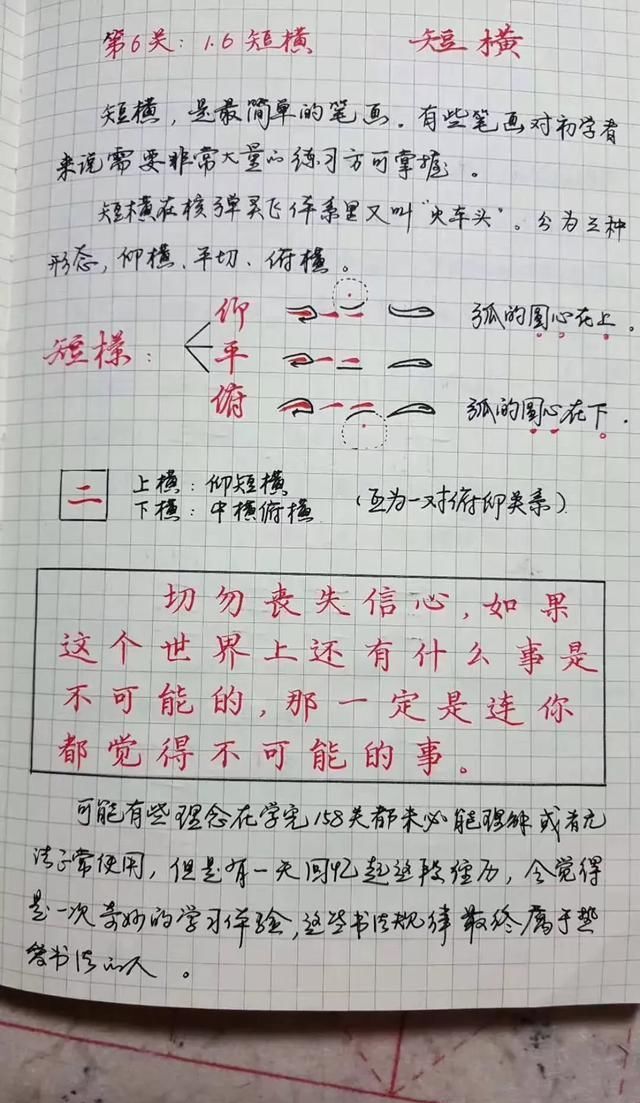 第6关：1.6短横 短横
短横，是最简单的笔画．有些笔画对初学者
来说需要非常大量的练习方可掌握。
短横在核弹灵飞体系里又叫“火车头”。分为三种
形态，仰横、平切、俯横。
短横：
仰 弧的圆心在上。
平
俯 弧的圆心在下．
二 上横：仰短横
下横：中横俯横 （互为一对俯仰关系）
切勿丧失信心，如果
这个世界上还有什么事是
不可能的，那一定是连你
都觉得不可能的事。
可能有些理念在学完158关都未必能理解或者无
法正常使用，但是有一天回忆起这段经历，会觉得
是一次奇妙的学习体验，这些书法规律最终属于热
爱书法的人。